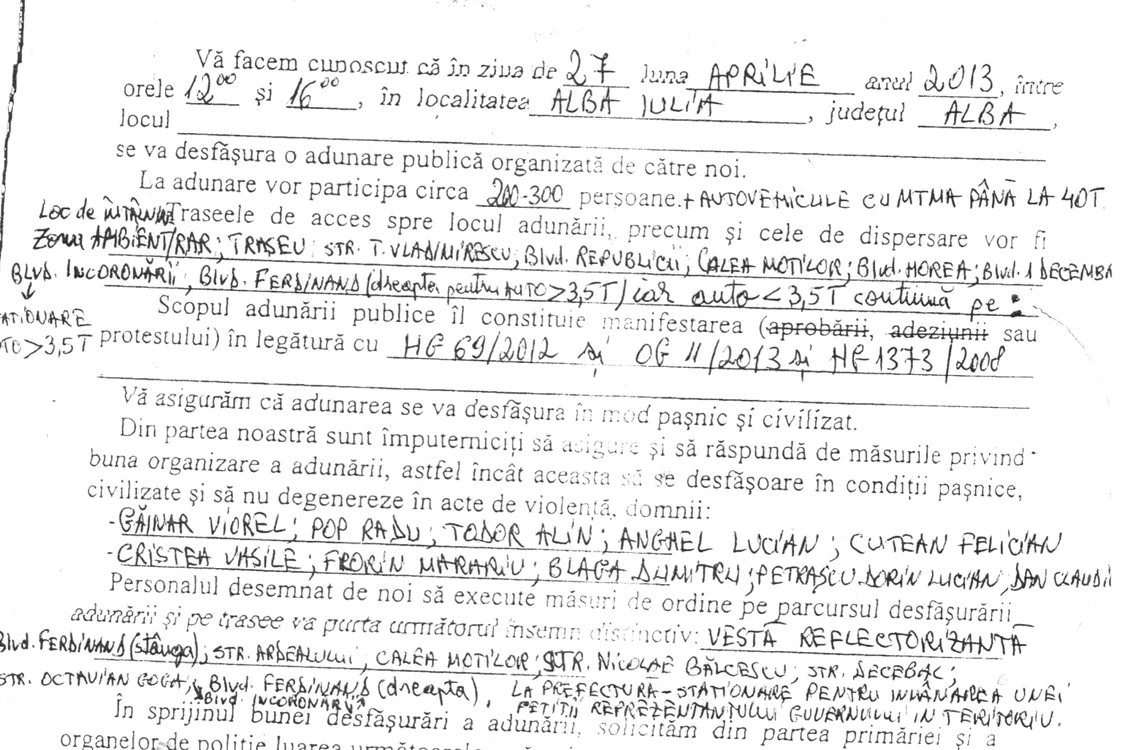 Vă facem cunoscut că în ziua de 27 luna APRILIE anul 2013, între
orele 12⁰⁰ şi 16⁰⁰, în localitatea ALBA IULIA, judeţul ALBA,
locul
se va desfăşura o adunare publică organizată de către noi.
La adunare vor participa circa 200-300 persoane.+ AUTOVEHICULE CU MTMA PÂNĂ LA 40T
Loc de Traseele de acces spre locul adunării, precum şi cele de dispersare vor fi
Zona AMBIENT/RAR; TRASEU: STR. T. VLADIMIRESCU; Blvd. REPUBLICII; CALEA MOTILOR; Blvd. HOREA; Blvd. 1 DECEMB
BLVD. INCORONĂRII; BLVD. FERDINAND (dreapta pentru AUTO>3,5T) iar auto<3,5T continuă pe:
Scopul adunării publice îl constituie manifestarea (aprobării, adeziunii sau
ATIONARE
TO>3,5T protestului) în legătură cu HG 69/2012 şi OG 11/2013 şi HG 1373/2008
Vă asigurăm că adunarea se va desfăşura în mod paşnic şi civilizat.
Din partea noastră sunt împuterniciţi să asigure şi să răspundă de măsurile privind
buna organizare a adunării, astfel încât aceasta să se desfăşoare în condiţii paşnice,
civilizate şi să nu degenereze în acte de violenţă, domnii:
-GĂINAR VIOREL; POP RADU; TODOR ALIN; ANGHEL LUCIAN; CUTEAN FELICIAN
-CRISTEA VASILE; FRORIN MARARIU; BLAGA DUMITRU; PETRAŞCU DORIN LUCIAN, DAN CLAUDIU
Personalul desemnat de noi să execute măsuri de ordine pe parcursul desfăşurării
adunării şi pe trasee va purta următorul însemn distinctiv: VESTĂ REFLECTORIZANTĂ
Blvd. FERDINAND (stânga); STR. ARDEALULUI, CALEA MOTILOR; STR. NICOLAE BĂLCESCU; STR. DECEBAL;
STR. OCTAVIAN GOGA; Blvd. FERDINAND (dreapta), LA PREFECTURA-STATIONARE PENTRU INMÂNAREA UNEI
Blvd. INCORONĂRII PETIŢII REPREZENTANTULUI GUVERNULUI IN TERITORIU.
În sprijinul bunei desfăşurări a adunării, solicităm din partea primăriei şi a
organelor de poliţie luarea